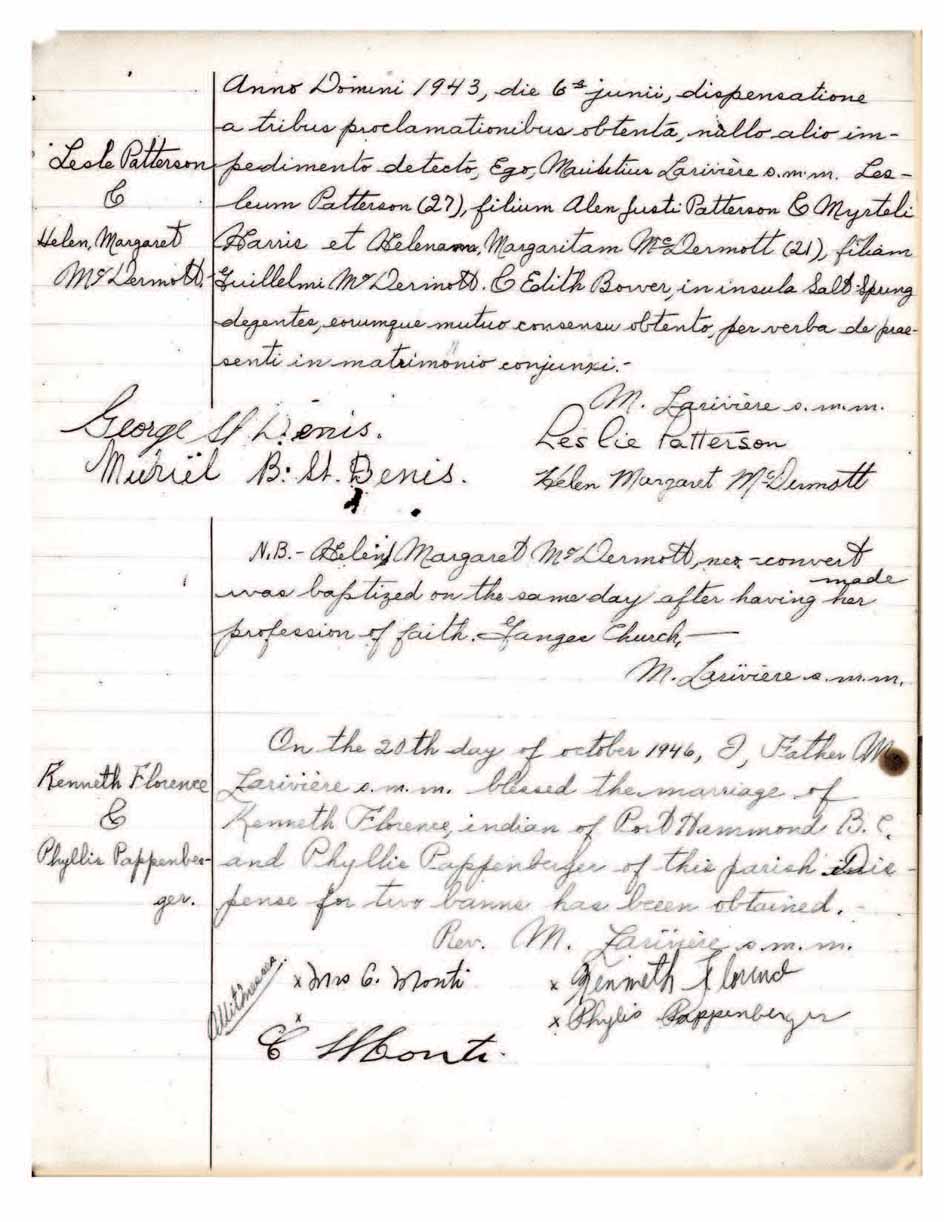 Anno Domini 1943, die 6a junii, dispensatione
a tribus proclamationibus obtenta, nullo alio im-
Lesle Patterson
&
Helen, Margaret
McDermott.
pedimento detecto, Ego, Larivière s.m.m. Les-
leum Patterson (27), filium Alen Justi Patterson & Myrteli
Harris et Helenam, Margaritam McDermott (21), filiam
Guillelmi McDermott. & Edith Bower, in insula Salt-Spring
degentes, eorumque mutuo consensu obtento, per verba de prae-
senti in matrimonio conjunxi.-
M. Larivière s.m.m.
George St Denis.
Leslie Patterson
Muriel B. St. Denis.
Helen Margaret McDermott
N.B.- Helen Margaret McDermott, neo-convert
was baptized on the same day after having made her
profession of faith. Ganges Church,—
M. Larivière s.m.m.
On the 20th day of october 1946, I, Father M.
Kenneth Florence
&
Phyllis Pappenber-
ger.
Larivière s.m.m. blessed the marriage of
Kenneth Florence, indian of Port Hammond B.C.
and Phyllis Pappenberger of this parish Dis-
pense for two banns has been obtained.-
Rev. M. Larivière s.m.m.
Witnesses.
x Mrs C. Monti
x Kenneth Florence
x Phylis Pappenberger
x
C Monti.